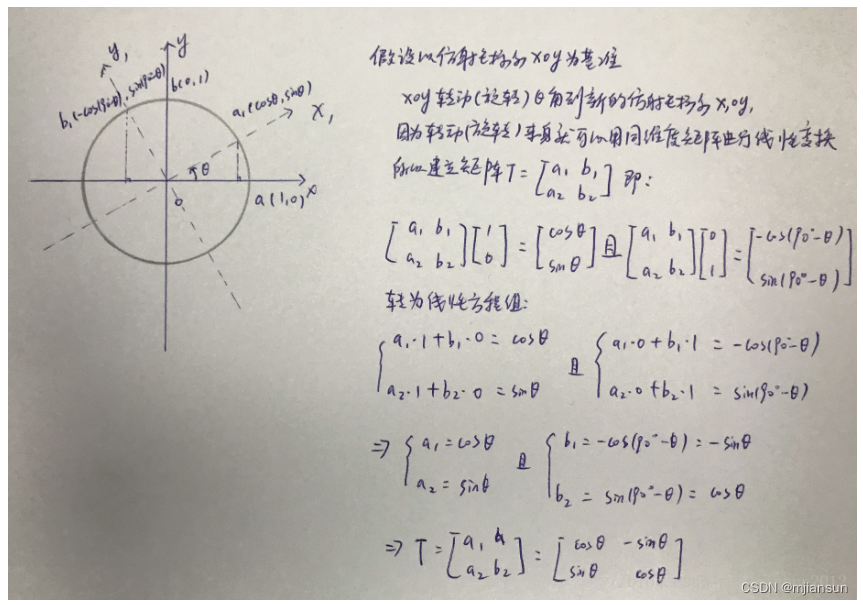 y₁
y
b₁(-cos(90°-θ), sin(90°-θ))
b(0,1)
a₁(cosθ, sinθ)
x₁
θ
o
a(1,0)
x
假设以仿射坐标系xoy为基准
xoy转动(旋转)θ角到新的仿射坐标系x₁oy₁
因为转动(旋转)本身就可以用同维度矩阵进行线性变换
所以建立矩阵T=[a₁ b₁; a₂ b₂] 即:
[a₁ b₁; a₂ b₂][1; 0] = [cosθ; sinθ] 且 [a₁ b₁; a₂ b₂][0; 1] = [-cos(90°-θ); sin(90°-θ)]
转为线性方程组:
{ a₁·1+b₁·0 = cosθ 且 { a₁·0+b₁·1 = -cos(90°-θ)
a₂·1+b₂·0 = sinθ a₂·0+b₂·1 = sin(90°-θ)
⇒ { a₁=cosθ 且 { b₁=-cos(90°-θ)=-sinθ
a₂=sinθ b₂=sin(90°-θ)=cosθ
⇒ T=[a₁ b₁; a₂ b₂]=[cosθ -sinθ; sinθ cosθ]
CSDN @mjiansun